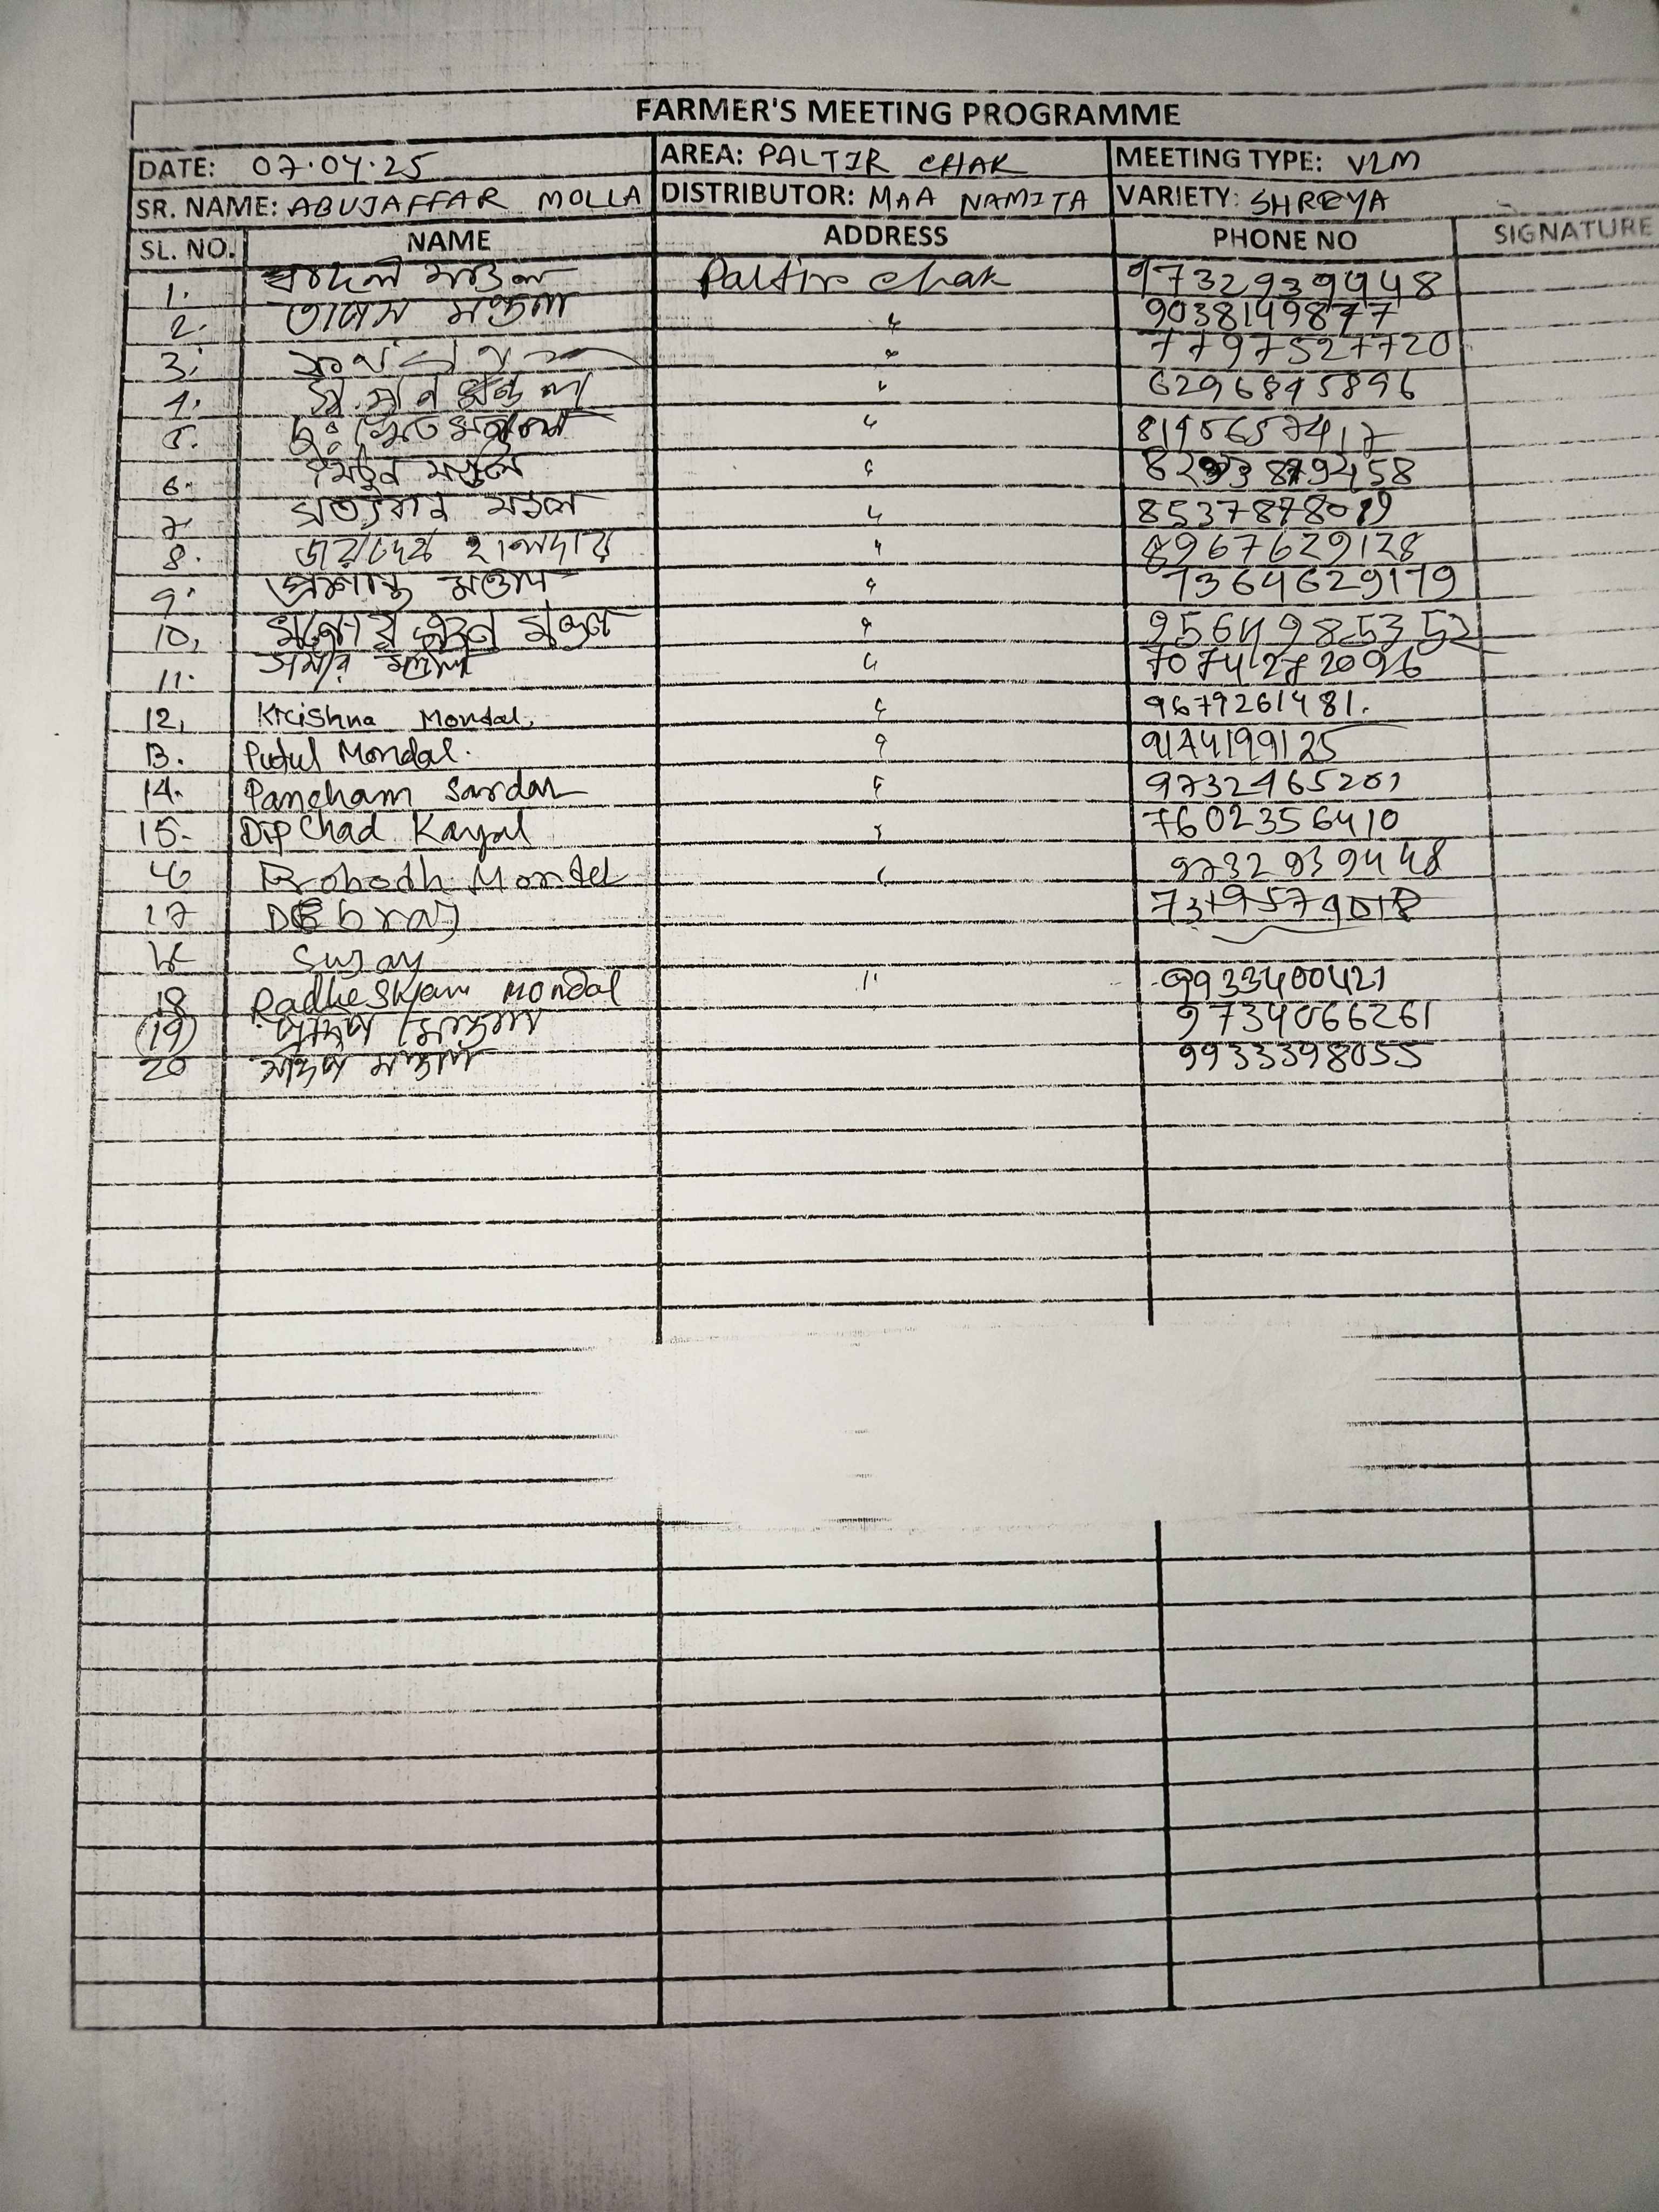 FARMER'S MEETING PROGRAMME
DATE: 07.04.25 AREA: PALTIR CHAK MEETING TYPE: VLM
SR. NAME: ABUJAFFAR MOLLA DISTRIBUTOR: MAA NAMITA VARIETY: SHREYA
SL. NO. NAME ADDRESS PHONE NO SIGNATURE
1. Paltir Chak 9732939448
2. তাপস মন্ডল 9038149877
3. 7797527720
4. 6296845896
5.
6. মিঠুন মণ্ডল
7. সত্যবান মন্ডল
8. জয়দেব হালদার 8967629128
9. প্রশান্ত মণ্ডল 7364629179
10.
11. সমীর মণ্ডল 7074272096
12. Krcishna Mondal. 9679261481.
13. Putul Mondal. 9144199125
14. Pancham Sardar 9732465201
15. DipChad Kayal 7602356410
16 Probodh Mondel 9732939448
17 Debraj
Sujay
18 Radheshyam Mondal " 9933400421
(19) 9734066261
20 মন্ডল 9933398055